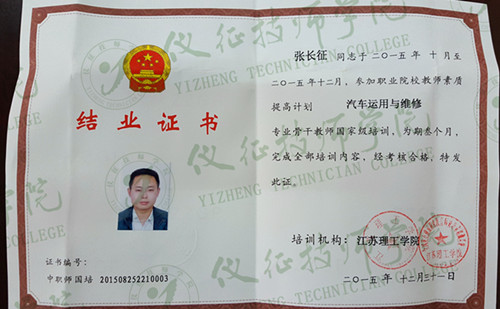 结业证书
证书编号:
中职师国培 201508252210003
张长征 同志于二〇一五年 十月至
二〇一五年十二月,参加职业院校教师素质
提高计划 汽车运用与维修
专业骨干教师国家级培训,为期叁个月,
完成全部培训内容,经考核合格,特发
此证。
培训机构:江苏理工学院
二〇一五年 十二月三十一日
仪征技师学院
YIZHENG TECHNICIAN COLLEGE
仪征技师学院
YIZHENG TECHNICIAN COLLEGE
仪征技师学院
YIZHENG TECHNICIAN COLLEGE